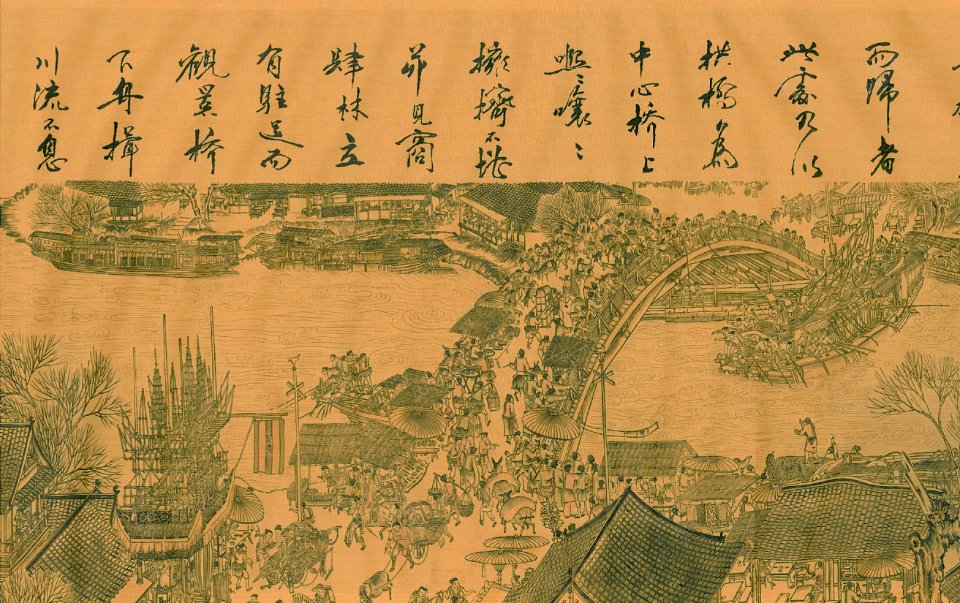 而歸者
此處乃以
拱橋為
中心橋上
熙〻嚷〻
擁擠不堪
見商
肆林立
有駐足而
觀景橋
下舟楫
川流不息